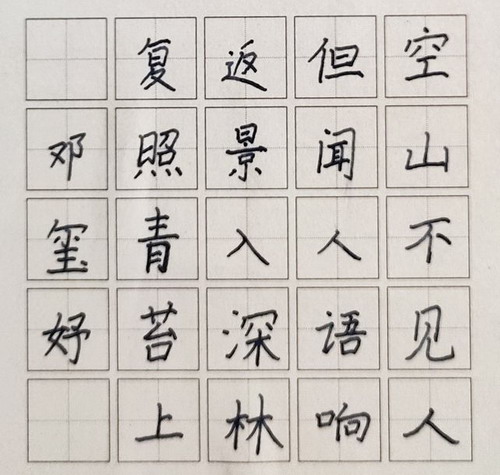 空山不见人
但闻人语响
返景入深林
复照青苔上
邓玺妤